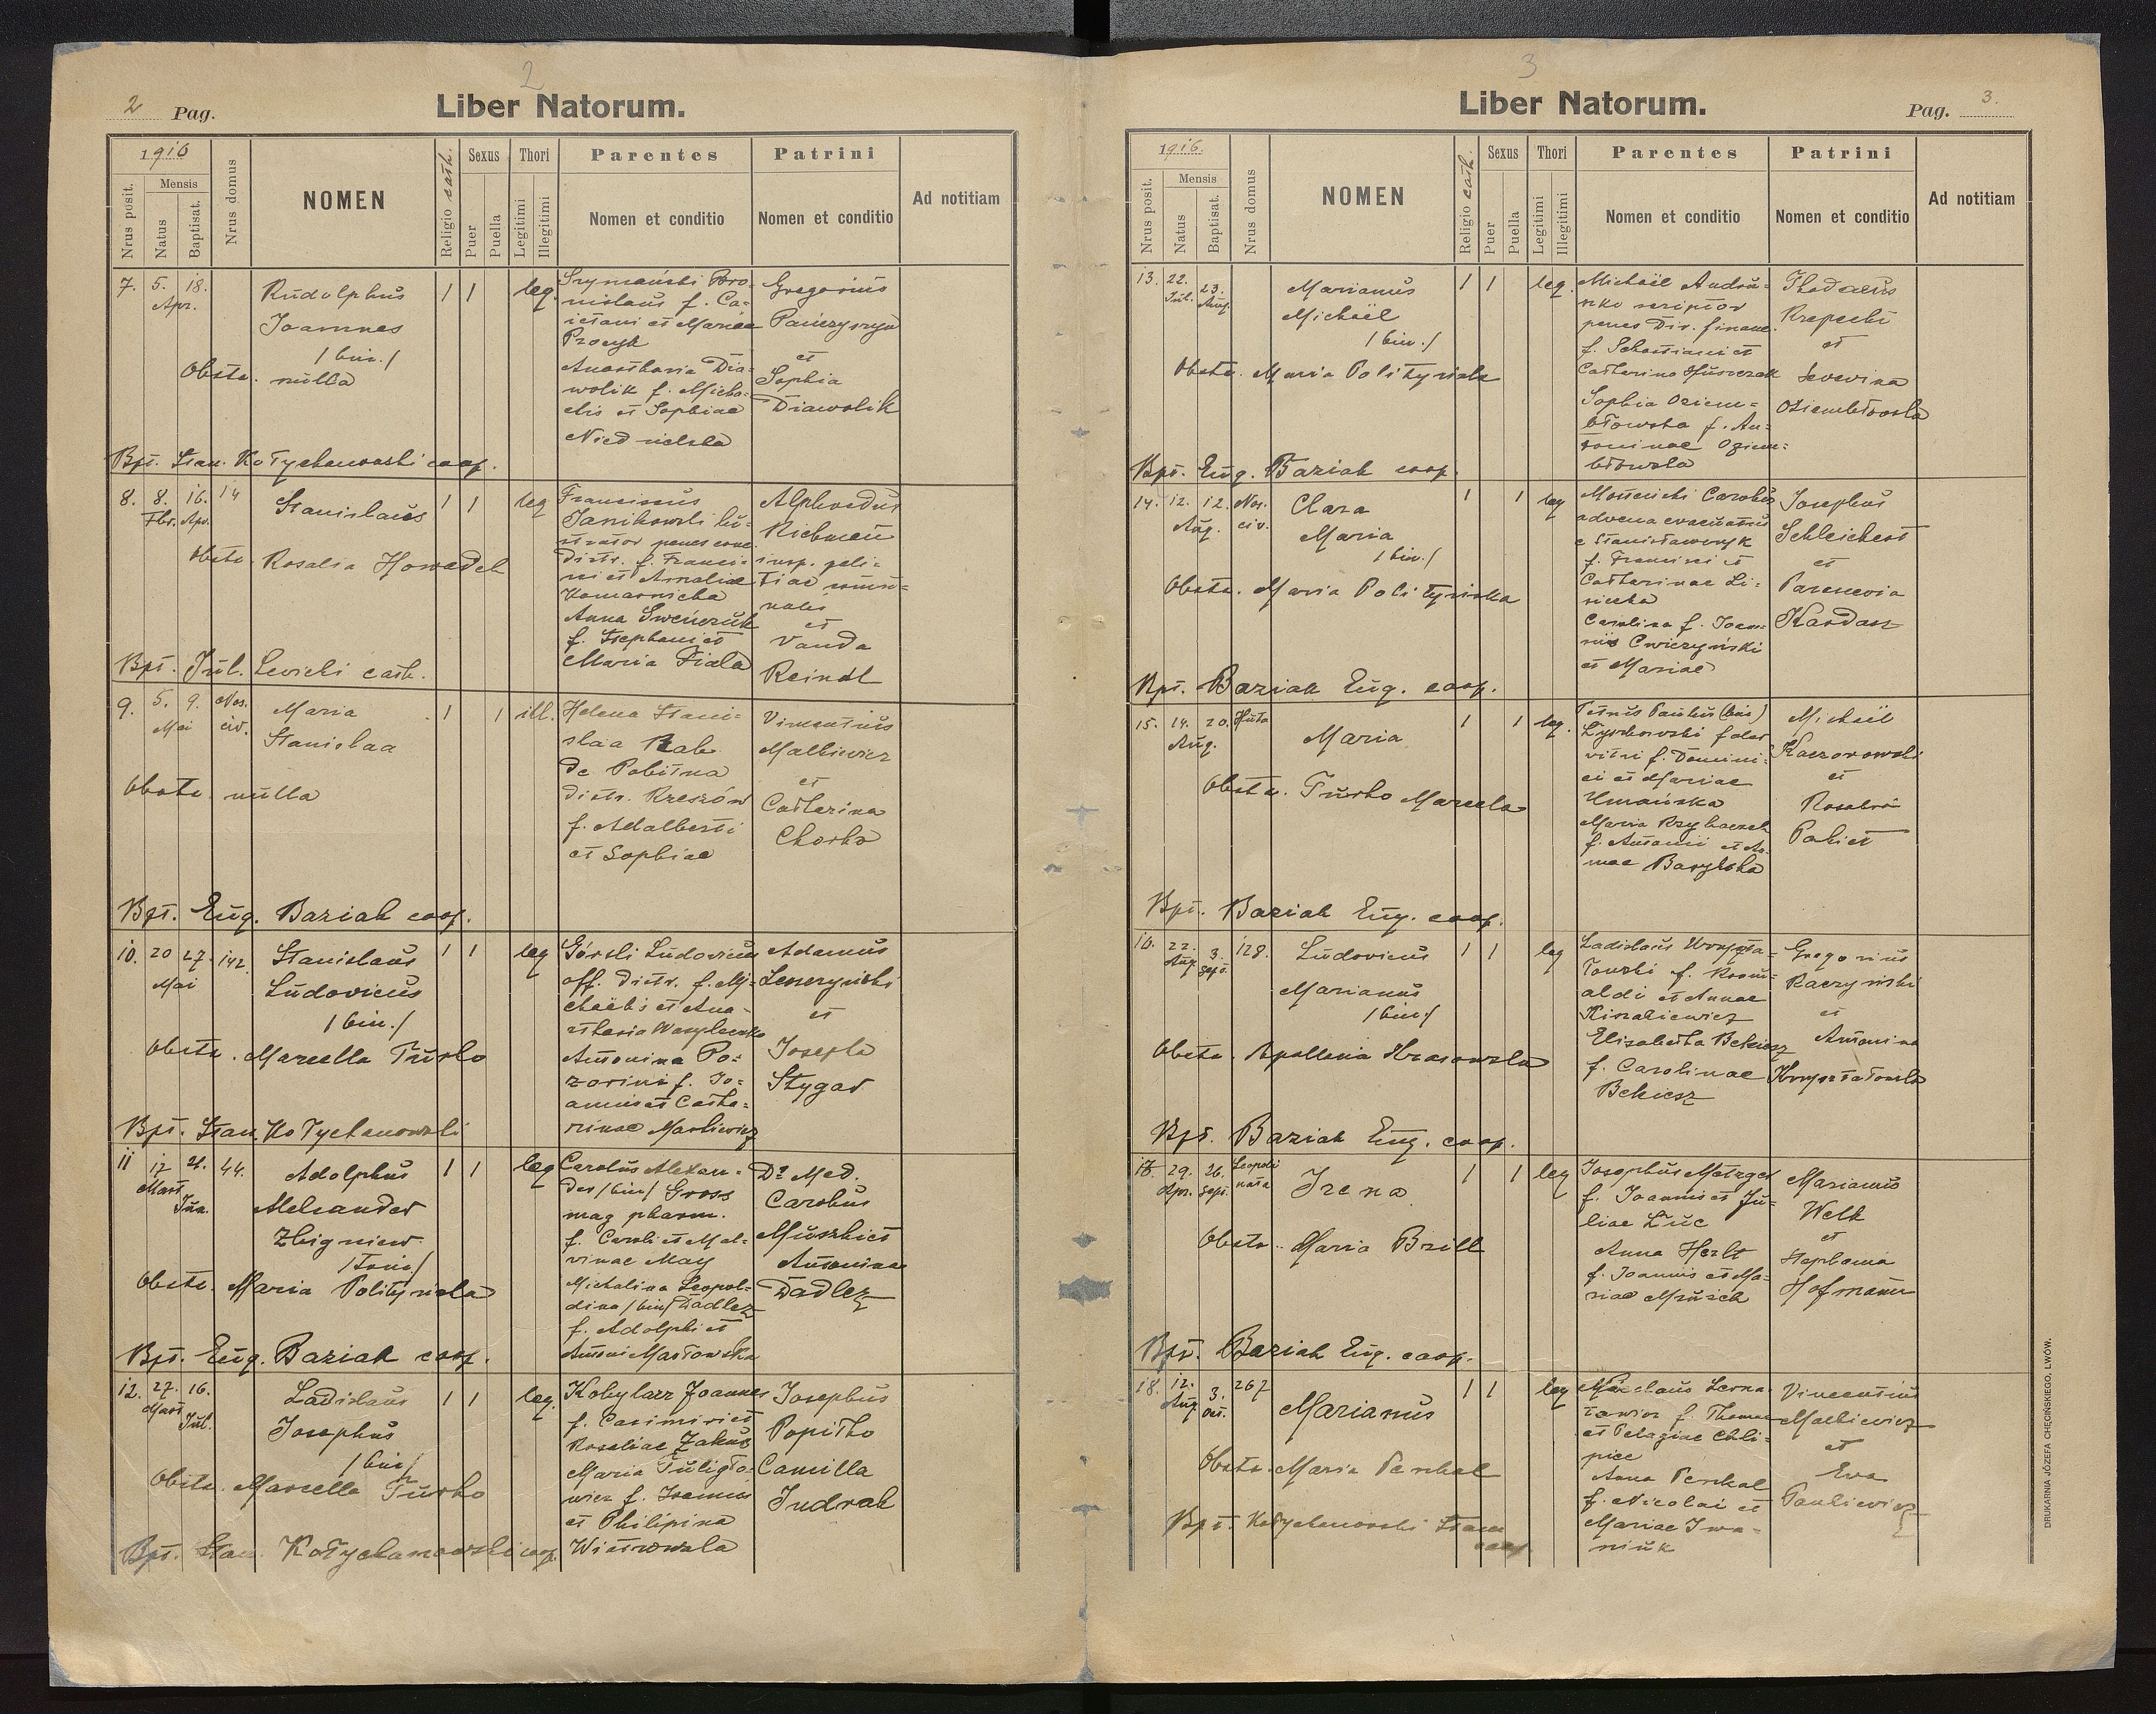 2
2 Pag.
Liber Natorum.
1916
Nrus posit.
Mensis
Natus
Baptisat.
Nrus domus
NOMEN
Religio cath.
Sexus
Puer
Puella
Thori
Legitimi
Illegitimi
Parentes
Nomen et conditio
Patrini
Nomen et conditio
Ad notitiam
7. 5. 18. Apr.
Rudolphus
Joannes
/bin./
Obste. nulla
1 1 leg.
Szymański Bro-
nislaus f. Ca-
ietani et Mariae
Procyk
Anastasia Dia-
wolik f. Micha-
elis et Sophiae
Niedzielska
Gregorius
Panczyszyn
et
Sophia
Diawolik
Bpt. Stan. Kołychanowski coop.
8. 8. 16. 14
Fbr. Apr.
Stanislaus
Obste. Rosalia Howadek
1 1 leg
Franciscus
Janikowski lu-
strator penes
distr. f. Franci-
sci et Amaliae
Komarnicka
Anna Swenczuk
f. Stephani et
Maria Fiala
Alphredus
Richmen
insp. poli-
tiae commu-
nalis
et
Vanda
Reindl
Bpt. Jul. Levicki cath.
9. 5. 9. Nos.
Mai civ.
Maria
Stanislaa
Obste. nulla
1 1 ill.
Helena Stani-
slaa Rab
de Pobitna
distr. Rzeszów
f. Adalberti
et Sophiae
Vincentius
Malkiewicz
et
Catharina
Chorko
Bpt. Eug. Baziak coop.
10. 20 27. 142
Mai
Stanislaus
Ludovicus
/bin./
Obste. Marcella Turko
1 1 leg
Górski Ludovicus
off. distr. f. Mi-
chaëlis et Ana-
stasia
Antonina Po-
zorini f. Jo-
annis et Catha-
rinae Markiewicz
Adamus
Leszczyński
et
Josepha
Stygar
Bpt. Stan. Kołychanowski
11 17 21. 44.
Mart. Jun.
Adolphus
Alexander
Zbigniew
/trin/
Obste. Maria Polityńska
1 1 leg
Carolus Alexan-
der /bin/ Gross
mag pharm.
f. Caroli et Mal-
vinae May
Michalina Leopol-
dina /bin/ Dadlez
f. Adolphi et
Antoni Martowska
Dr Med.
Carolus
Muszkiet
Antonina
Dadlez
Bpt. Eug. Baziak coop.
12. 27. 16.
Mart. Jul.
Ladislaus
Josephus
/bin/
Obste. Marcella Turko
1 1 leg.
Kobylarz Joannes
f. Casimiri et
Rosaliae Zakus
Maria Fuligło-
wicz f. Joannis
et Philipina
Josephus
Popitko
Camilla
Jndrak
Bpt. Stan. Kołychanowski coop.
3
Liber Natorum.
Pag. 3.
1916.
Nrus posit.
Mensis
Natus
Baptisat.
Nrus domus
NOMEN
Religio cath.
Sexus
Puer
Puella
Thori
Legitimi
Illegitimi
Parentes
Nomen et conditio
Patrini
Nomen et conditio
Ad notitiam
13. 22. 23.
Jul. Aug.
Marianus
Michaël
/bin./
Obste. Maria Polityńska
1 1 leg.
Michaël Andru-
szko scriptor
penes Dir. financ.
f. Sebastiani et
Catharina Huszczak
Sophia Oziem-
błowska f. An-
toninae Oziem-
błowska
Thadaeus
Krzpecki
et
Severina
Oziembłowska
Bpt. Eug. Baziak coop.
14. 12. 12. Nos.
Aug. civ.
Clara
Maria
/bin./
Obste. Maria Polityńska
1 1 leg
Mościcki Carolus
advena evacuatus
e Stanisławczyk
f. Francisci et
Catharinae Li-
sicka
Carolina f. Joan-
nis Cwiczyński
et Mariae
Josephus
Schleichert
et
Parascevia
Kardasz
Bpt. Baziak Eug. coop.
15. 14. 20. Huta
Aug.
Maria
Obste. Turko Marcela
1 1 leg.
Petrus Paulus (bin)
f. Domini-
ci et Mariae
Umańska
Maria Krzyhaczek
f. Antonii et An-
nae Barylska
Michaël
Kaczorowski
et
Rosalia
Paliet
Bpt. Baziak Eug. coop.
16. 22. 3. 128.
Aug. Sept.
Ludovicus
Marianus
/bin/
Obste. Apollonia Krasowska
1 1 leg
Ladislaus Kryszta-
łowski f. Romu-
aldi et Annae
Kiszakiewicz
Elisabetha Bekiesz
f. Carolinae
Bekiesz
Gregorius
Raczyński
et
Antonina
Kryształowska
Bpt. Baziak Eug. coop.
17. 29. 26. Leopoli
Apr. Sept. nata
Irena
Obste. Maria Brill
1 1 leg
Josephus Metzger
f. Joannis et Ju-
liae Luc
Anna Herlt
f. Joannis et Ma-
riae Musick
Marianus
Welk
et
Stephania
Hofmann
Bpt. Baziak Eug. coop.
18. 12. 3. 267
Aug Oct.
Marianus
Obste. Maria Perkal
1 1 leg
Nicolaus Lerna-
towicz f. Thomae
et Pelagiae Chli-
pice
Anna Perkal
f. Nicolai et
Mariae Iwa-
niuk
Vincentius
Malkiewicz
et
Ewa
Paukiewicz
Bpt. Kołychanowski Stan
coop.
DRUKARNIA JÓZEFA CHĘCIŃSKIEGO, LWÓW.